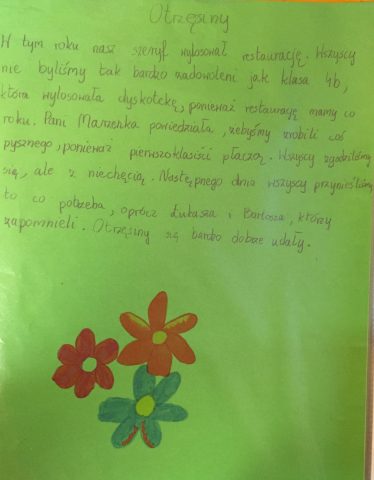 Otrzęsiny
W tym roku nasz szeryf wylosował restaurację. Wszyscy
nie byliśmy tak bardzo zadowoleni jak klasa 4b,
która wylosowała dyskotekę, ponieważ restaurację mamy co
roku. Pani Marzenka powiedziała, żebyśmy zrobili coś
pysznego, ponieważ pierwszoklasiści płaczą. Wszyscy zgodziliśmy
się, ale z niechęcią. Następnego dnia wszyscy przynieśliśmy
to co potrzeba, oprócz Łukasza i Bartosza, którzy
zapomnieli. Otrzęsiny się bardzo dobrze udały.